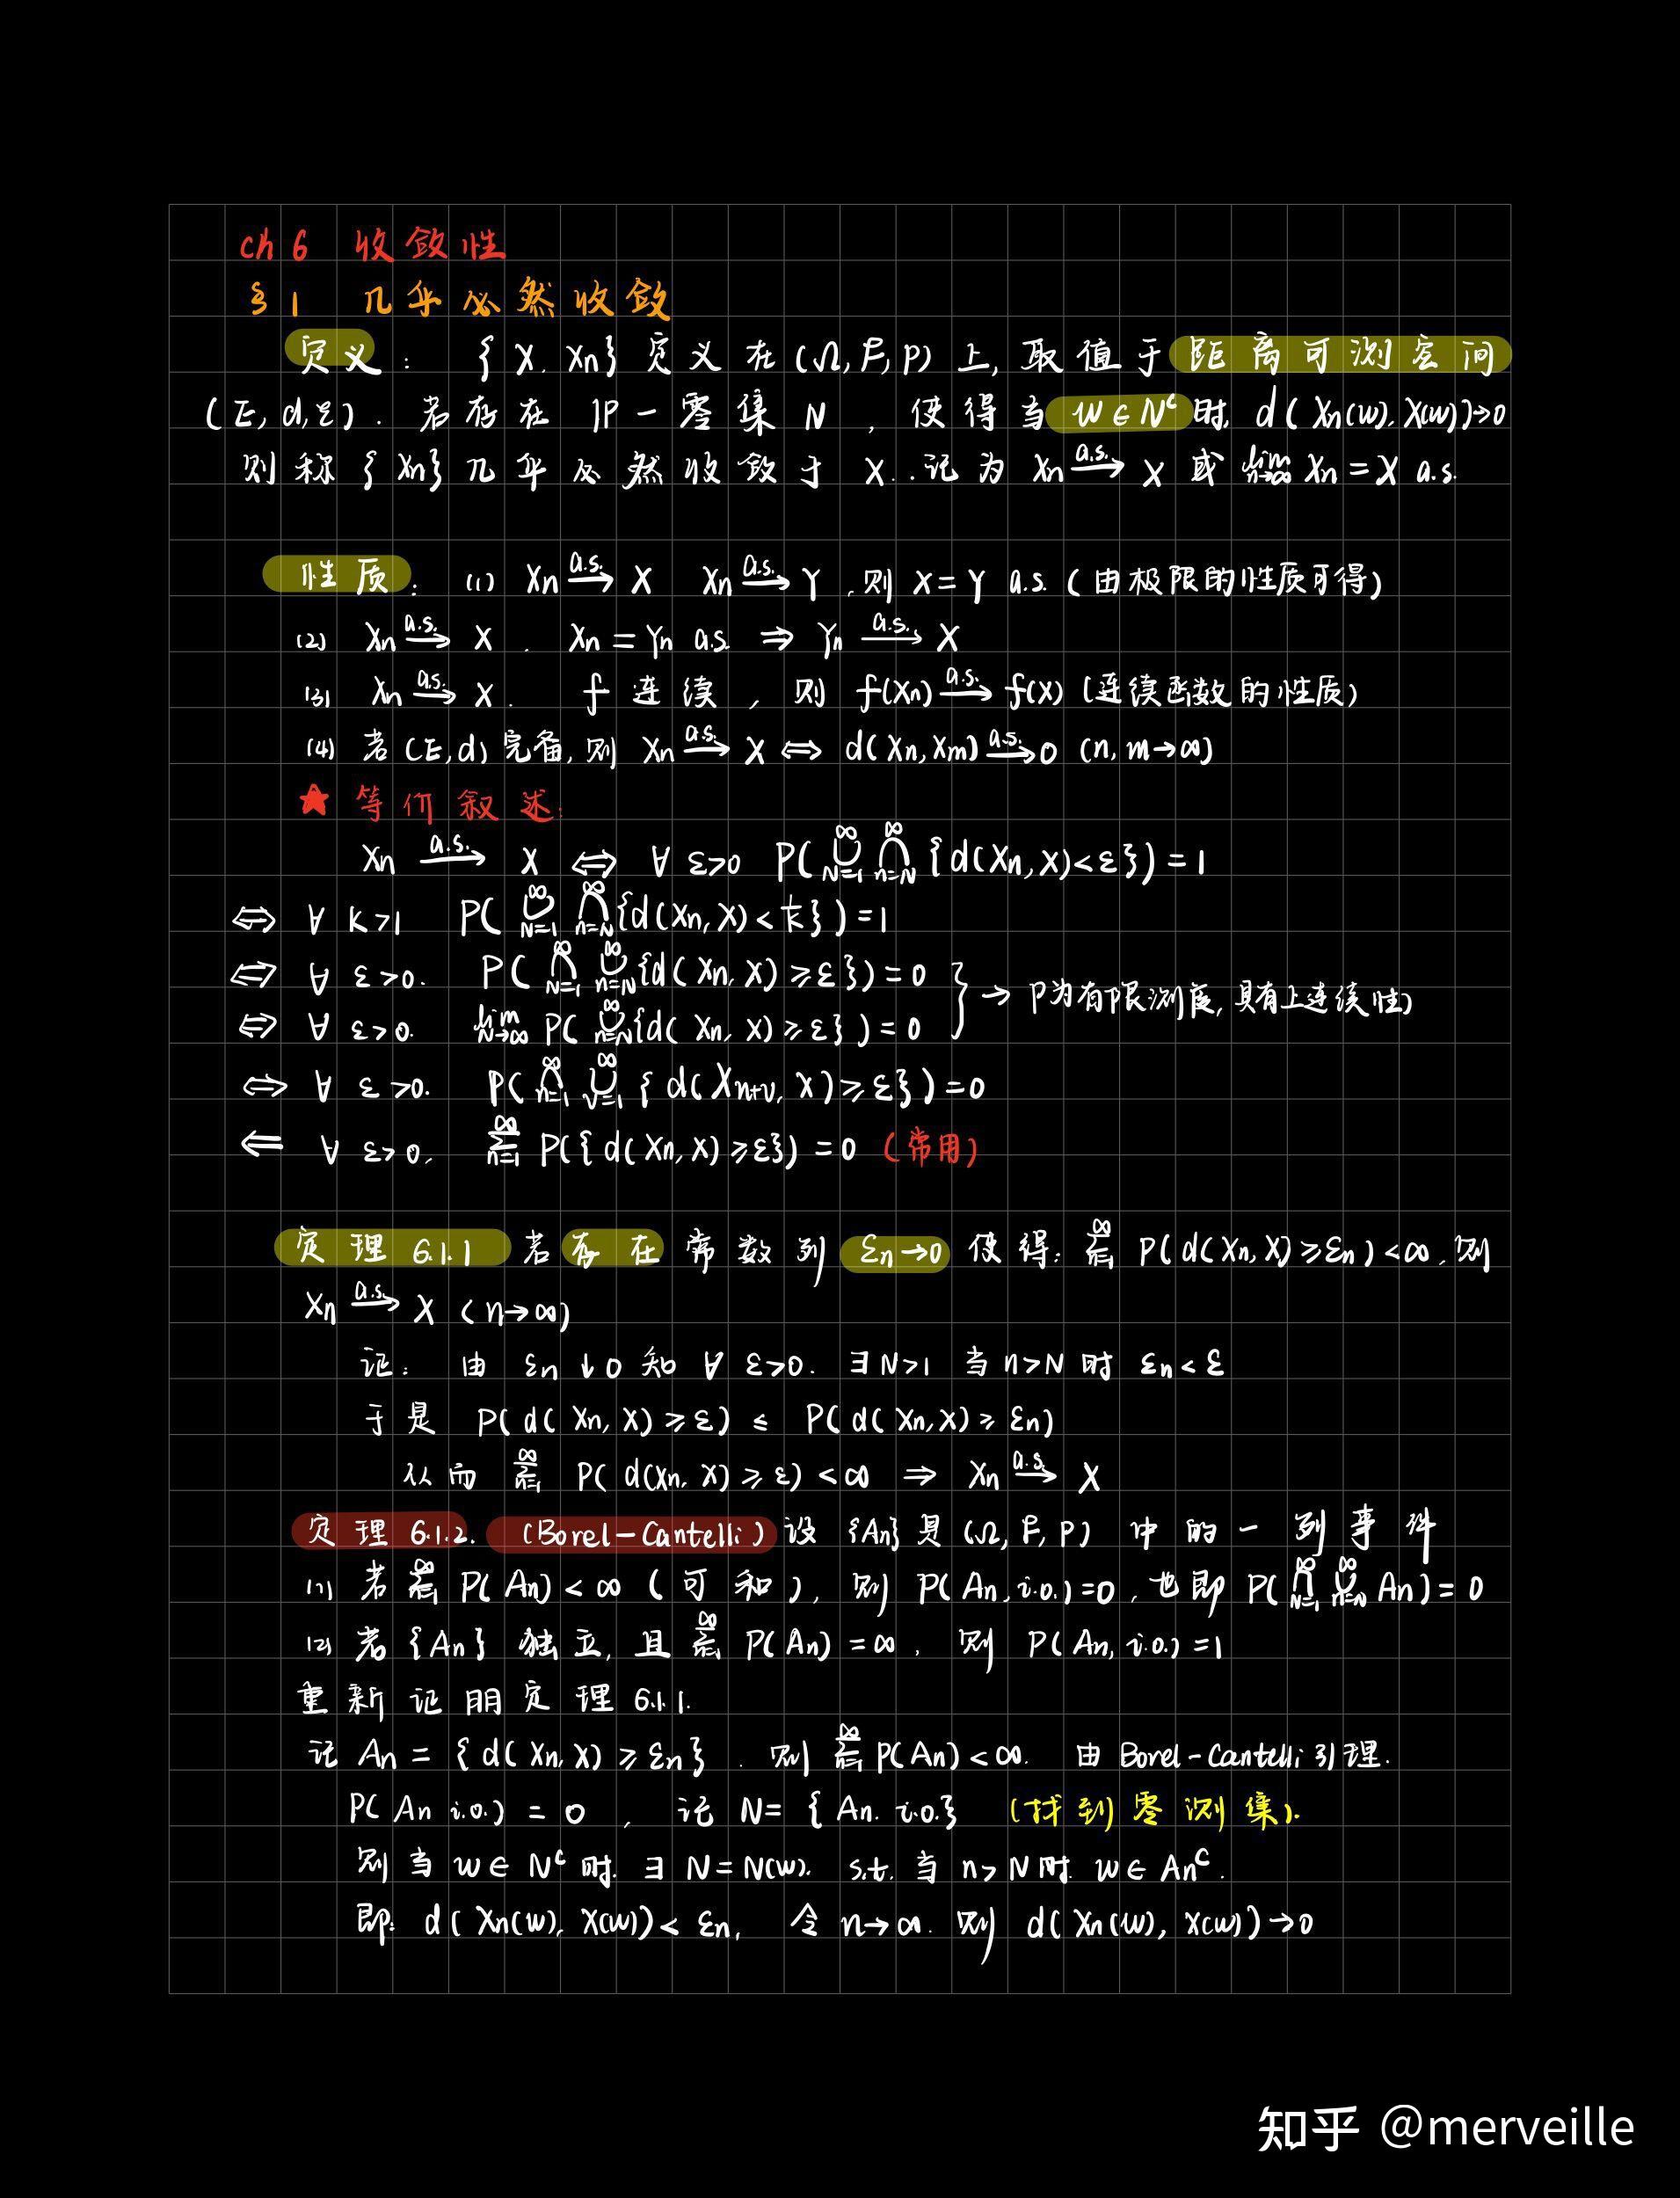 ch 6 收敛性
§1 几乎必然收敛
定义: {X, Xn} 定义在(Ω, F, P)上, 取值于距离可测空间
(E, d, ε). 若存在 P-零集 N, 使得当 w∈N^c 时, d(Xn(w), X(w))→0
则称{Xn}几乎必然收敛于 X. 记为 Xn -a.s.→ X 或 lim_{n→∞} Xn = X a.s.
性质: (1) Xn -a.s.→ X Xn -a.s.→ Y, 则 X = Y a.s. (由极限的性质可得)
(2) Xn -a.s.→ X, Xn = Yn a.s. ⇒ Yn -a.s.→ X
(3) Xn -a.s.→ X, f 连续, 则 f(Xn) -a.s.→ f(X) (连续函数的性质)
(4) 若(E,d)完备, 则 Xn -a.s.→ X ⇔ d(Xn, Xm) -a.s.→ 0 (n, m→∞)
★ 等价叙述:
Xn -a.s.→ X ⇔ ∀ ε>0 P(∪_{N=1}^∞ ∩_{n=N}^∞ {d(Xn, X)<ε}) = 1
⇔ ∀ k>1 P(∪_{N=1}^∞ ∩_{n=N}^∞ {d(Xn, X)<1/k}) = 1
⇔ ∀ ε>0. P(∩_{N=1}^∞ ∪_{n=N}^∞ {d(Xn, X)≥ε}) = 0
⇔ ∀ ε>0. lim_{N→∞} P(∪_{n=N}^∞ {d(Xn, X)≥ε}) = 0 } → P为有限测度, 具有上连续性)
⇔ ∀ ε>0. P(∩_{n=1}^∞ ∪_{v=1}^∞ {d(X_{n+v}, X)≥ε}) = 0
⇐ ∀ ε>0, ∑_{n=1}^∞ P({d(Xn, X)≥ε}) = 0 (常用)
定理 6.1.1 若存在常数列 εn→0 使得: ∑_{n=1}^∞ P(d(Xn, X)≥εn)<∞, 则
Xn -a.s.→ X (n→∞)
证: 由 εn↓0 知 ∀ ε>0. ∃ N>1 当 n>N 时 εn<ε
于是 P(d(Xn, X)≥ε) ≤ P(d(Xn, X)≥εn)
从而 ∑_{n=1}^∞ P(d(Xn, X)≥ε)<∞ ⇒ Xn -a.s.→ X
定理 6.1.2. (Borel-Cantelli) 设{An}是(Ω, F, P)中的一列事件
(1) 若 ∑_{n=1}^∞ P(An)<∞ (可和), 则 P(An, i.o.)=0, 也即 P(∩_{N=1}^∞ ∪_{n=N}^∞ An) = 0
(2) 若{An}独立, 且 ∑_{n=1}^∞ P(An) = ∞, 则 P(An, i.o.) = 1
重新证明定理 6.1.1.
记 An = {d(Xn, X)≥εn}. 则 ∑_{n=1}^∞ P(An)<∞. 由 Borel-Cantelli引理.
P(An i.o.) = 0, 记 N = {An. i.o.} (找到零测集).
则当 w∈N^c 时. ∃ N=N(w). s.t. 当 n>N 时. w∈An^c.
即: d(Xn(w), X(w))<εn, 令 n→∞. 则 d(Xn(w), X(w))→0
知乎 @merveille